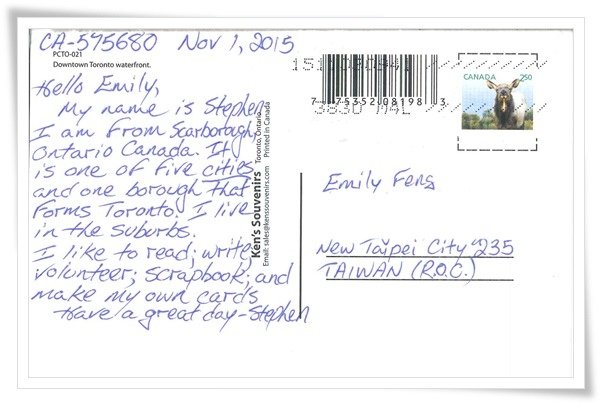 CA-545680 Nov 1, 2015
PCTO-021
Downtown Toronto waterfront.
Hello Emily,
My name is Stephen
I am from Scarborough,
Ontario Canada. It
is one of five cities
and one borough that
forms Toronto. I live
in the suburbs.
I like to read; write;
volunteer; scrapbook; and
make my own cards
Have a great day-Stephen
Ken's Souvenirs Toronto, Ontario
Email: sales@kenssouvenirs.com Printed in Canada
7 75352 08198 3
CANADA 250
Emily Feng
New Taipei City 235
TAIWAN (R.O.C.)